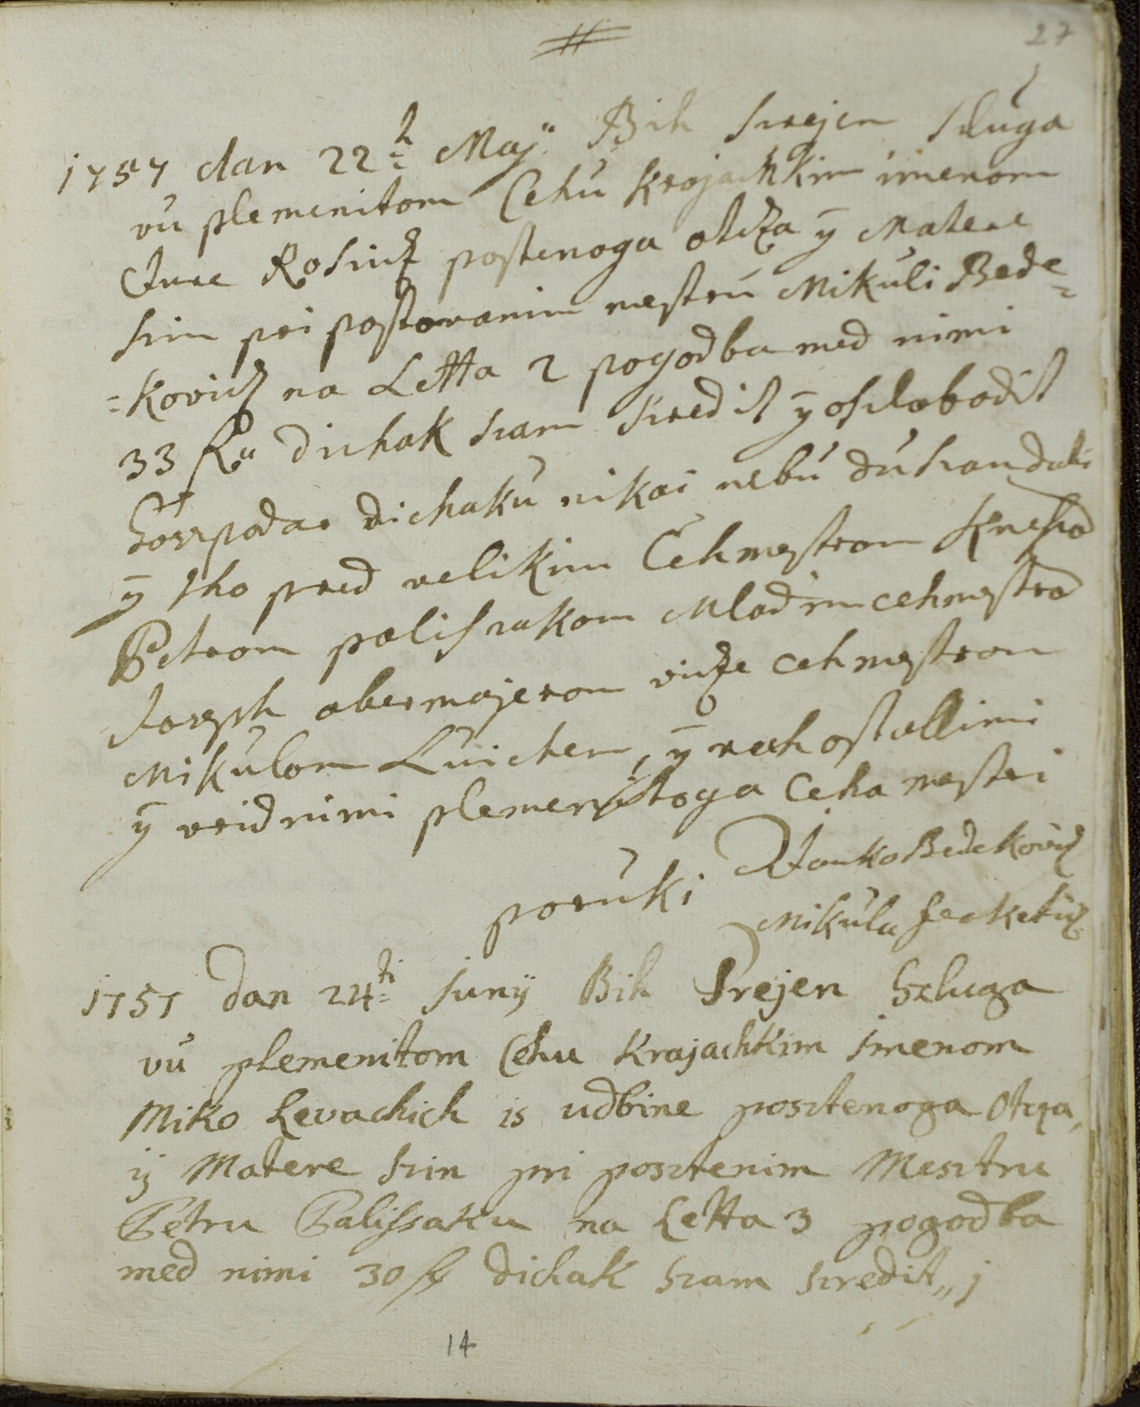 27
1757 dan 22 Maij Bih szrejen szluga
vu plemenitom Cehu krojachkim imenom
Jure Rosicz postenoga otcza ÿ Matere
szin pri postovanim mestru Mikuli Bede=
=kovich na Letta 2 pogodba med nimi
33 Rn dichak szam szredit ÿ oszlobodit
Goszpodar dichaku nikai nebu dusan dati
ÿ tho pred velikim Cehmestrom
Petrom paliszakom Mladim cehmestrom
Joseph obermajerom vicze cehmestrom
Mikulom Luichem, ÿ vseh ostallimi
ÿ vridnimi plemenitoga Ceha mestri
poruki Janko Bedekovich
Mikula Feketich
1757 dan 24ti Junij Bih Prejen Szluga
vu plemenitom Cehu Krajachkim imenom
Miko Levachich is udbine posztenoga Otcza,
ij Matere szin pri posztenim Mesztru
Petru Palissaku na Letta 3 pogodba
med nimi 30 f dichak szam szredit,, j
14